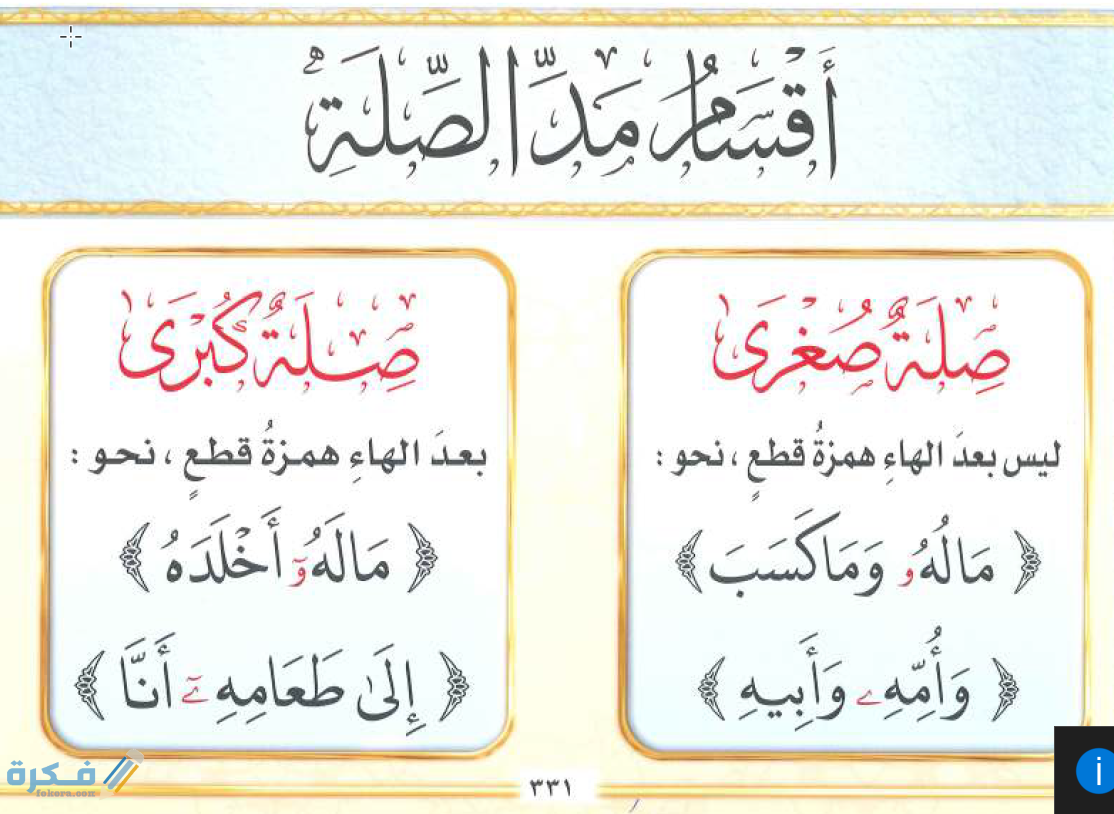 أَقْسَامُ مَدِّ الصِّلَةِ
صِلَةٌ صُغْرَى
ليس بعدَ الهاءِ همزةُ قطعٍ ، نحو :
﴿ مَالُهُۥ وَمَا كَسَبَ ﴾
﴿ وَأُمِّهِۦ وَأَبِيهِ ﴾
صِلَةٌ كُبْرَى
بعدَ الهاءِ همزةُ قطعٍ ، نحو :
﴿ مَالَهُۥٓ أَخْلَدَهُ ﴾
﴿ إِلَىٰ طَعَامِهِۦٓ أَنَّا ﴾
٣٣١
فكرة
fekera.com
i